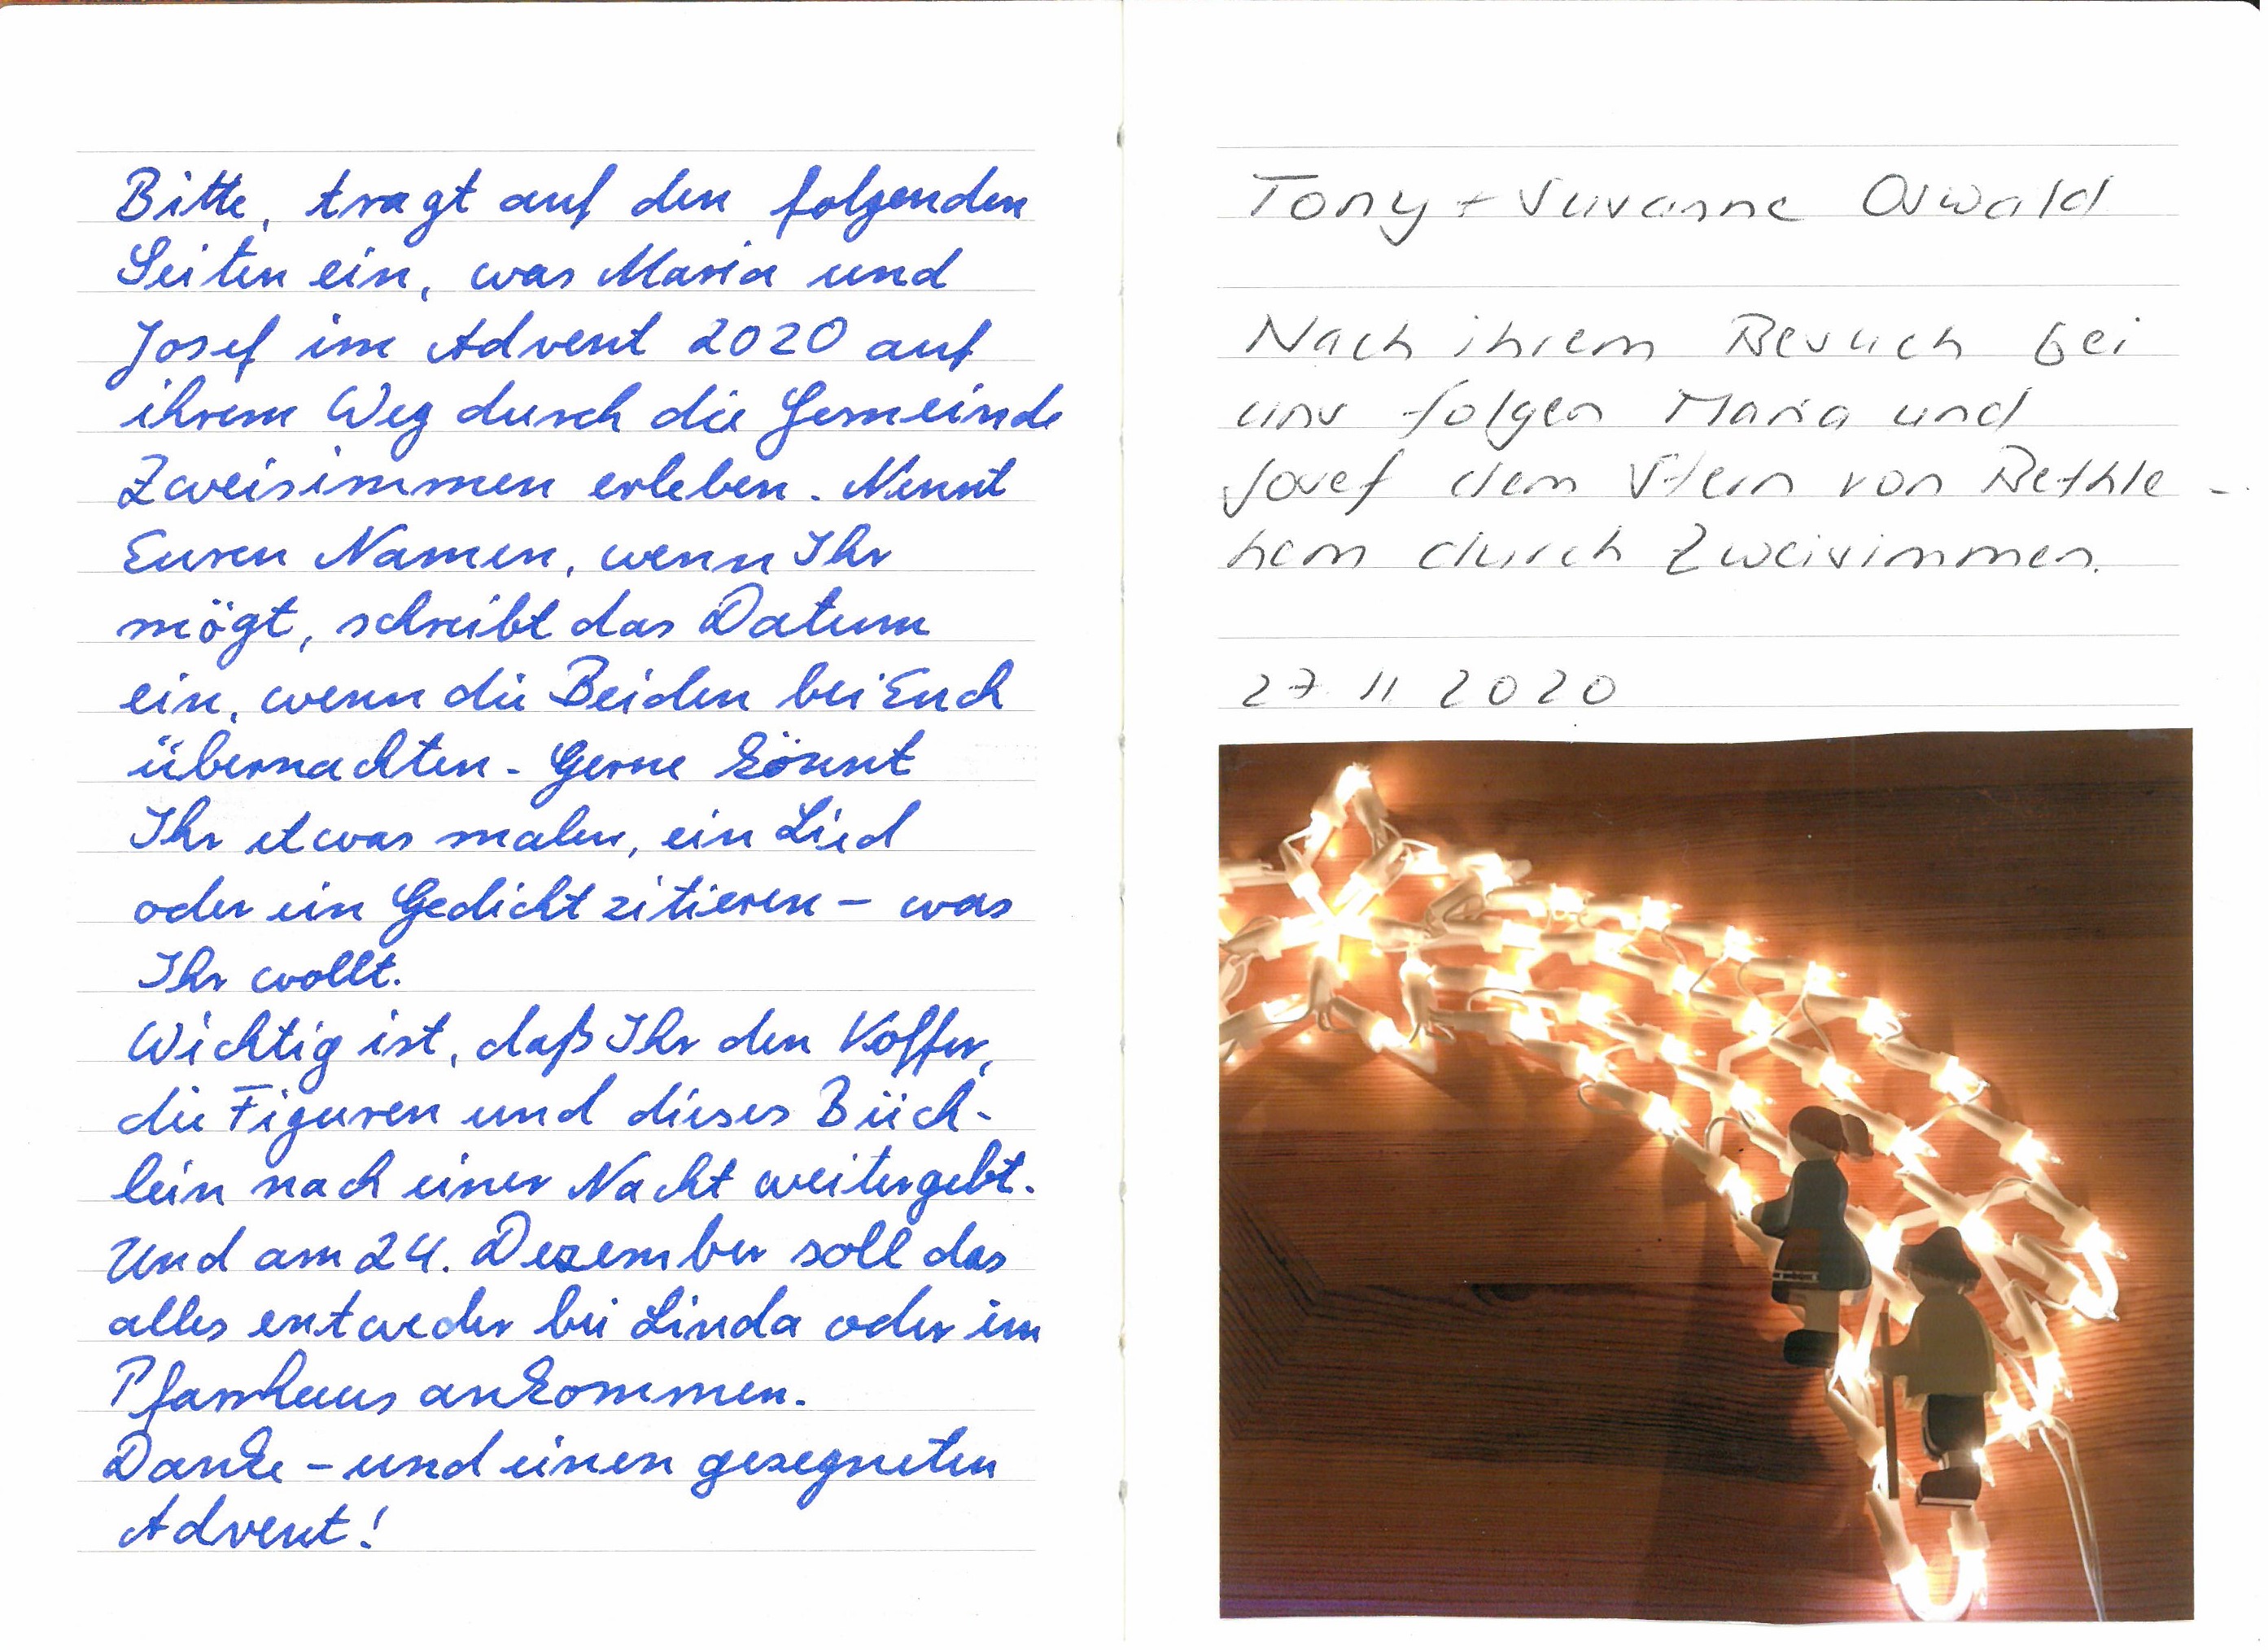 Bitte, tragt auf den folgenden
Seiten ein, was Maria und
Josef im Advent 2020 auf
ihrem Weg durch die Gemeinde
Zweisimmen erleben. Nennt
Euren Namen, wenn Ihr
mögt, schreibt das Datum
ein, wenn die Beiden bei Euch
übernachten. Gerne könnt
Ihr etwas malen, ein Lied
oder ein Gedicht zitieren – was
Ihr wollt.
Wichtig ist, daß Ihr den Koffer,
die Figuren und dieses Büch-
lein nach einer Nacht weitergebt.
Und am 24. Dezember soll das
alles entweder bei Linda oder im
Pfarrhaus ankommen.
Danke – und einen gesegneten
Advent!
Tony + Susanne Oswald
Nach ihrem Besuch bei
uns folgen Maria und
Josef dem Stern von Bethle-
hem durch Zweisimmen.
27. 11 2020